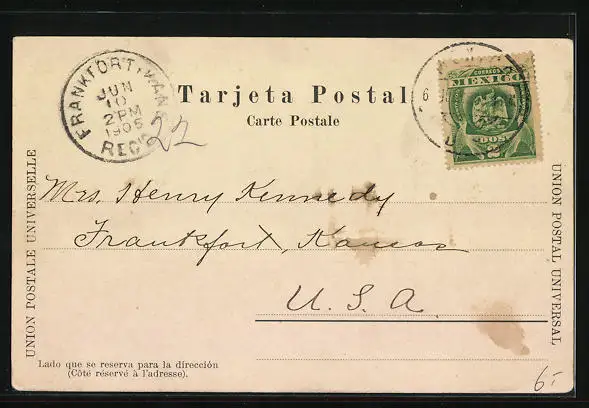 FRANKFORT, KANS.
JUN
10
2 PM
1905
REC'D
22
Tarjeta Postal
Carte Postale
CORREOS
MEXICO
DOS
2
UNION POSTALE UNIVERSELLE
UNION POSTAL UNIVERSAL
Mrs. Henry Kennedy
Frankfort, Kansas
U. S. A.
Lado que se reserva para la dirección
(Côté réservé à l'adresse).
6.-